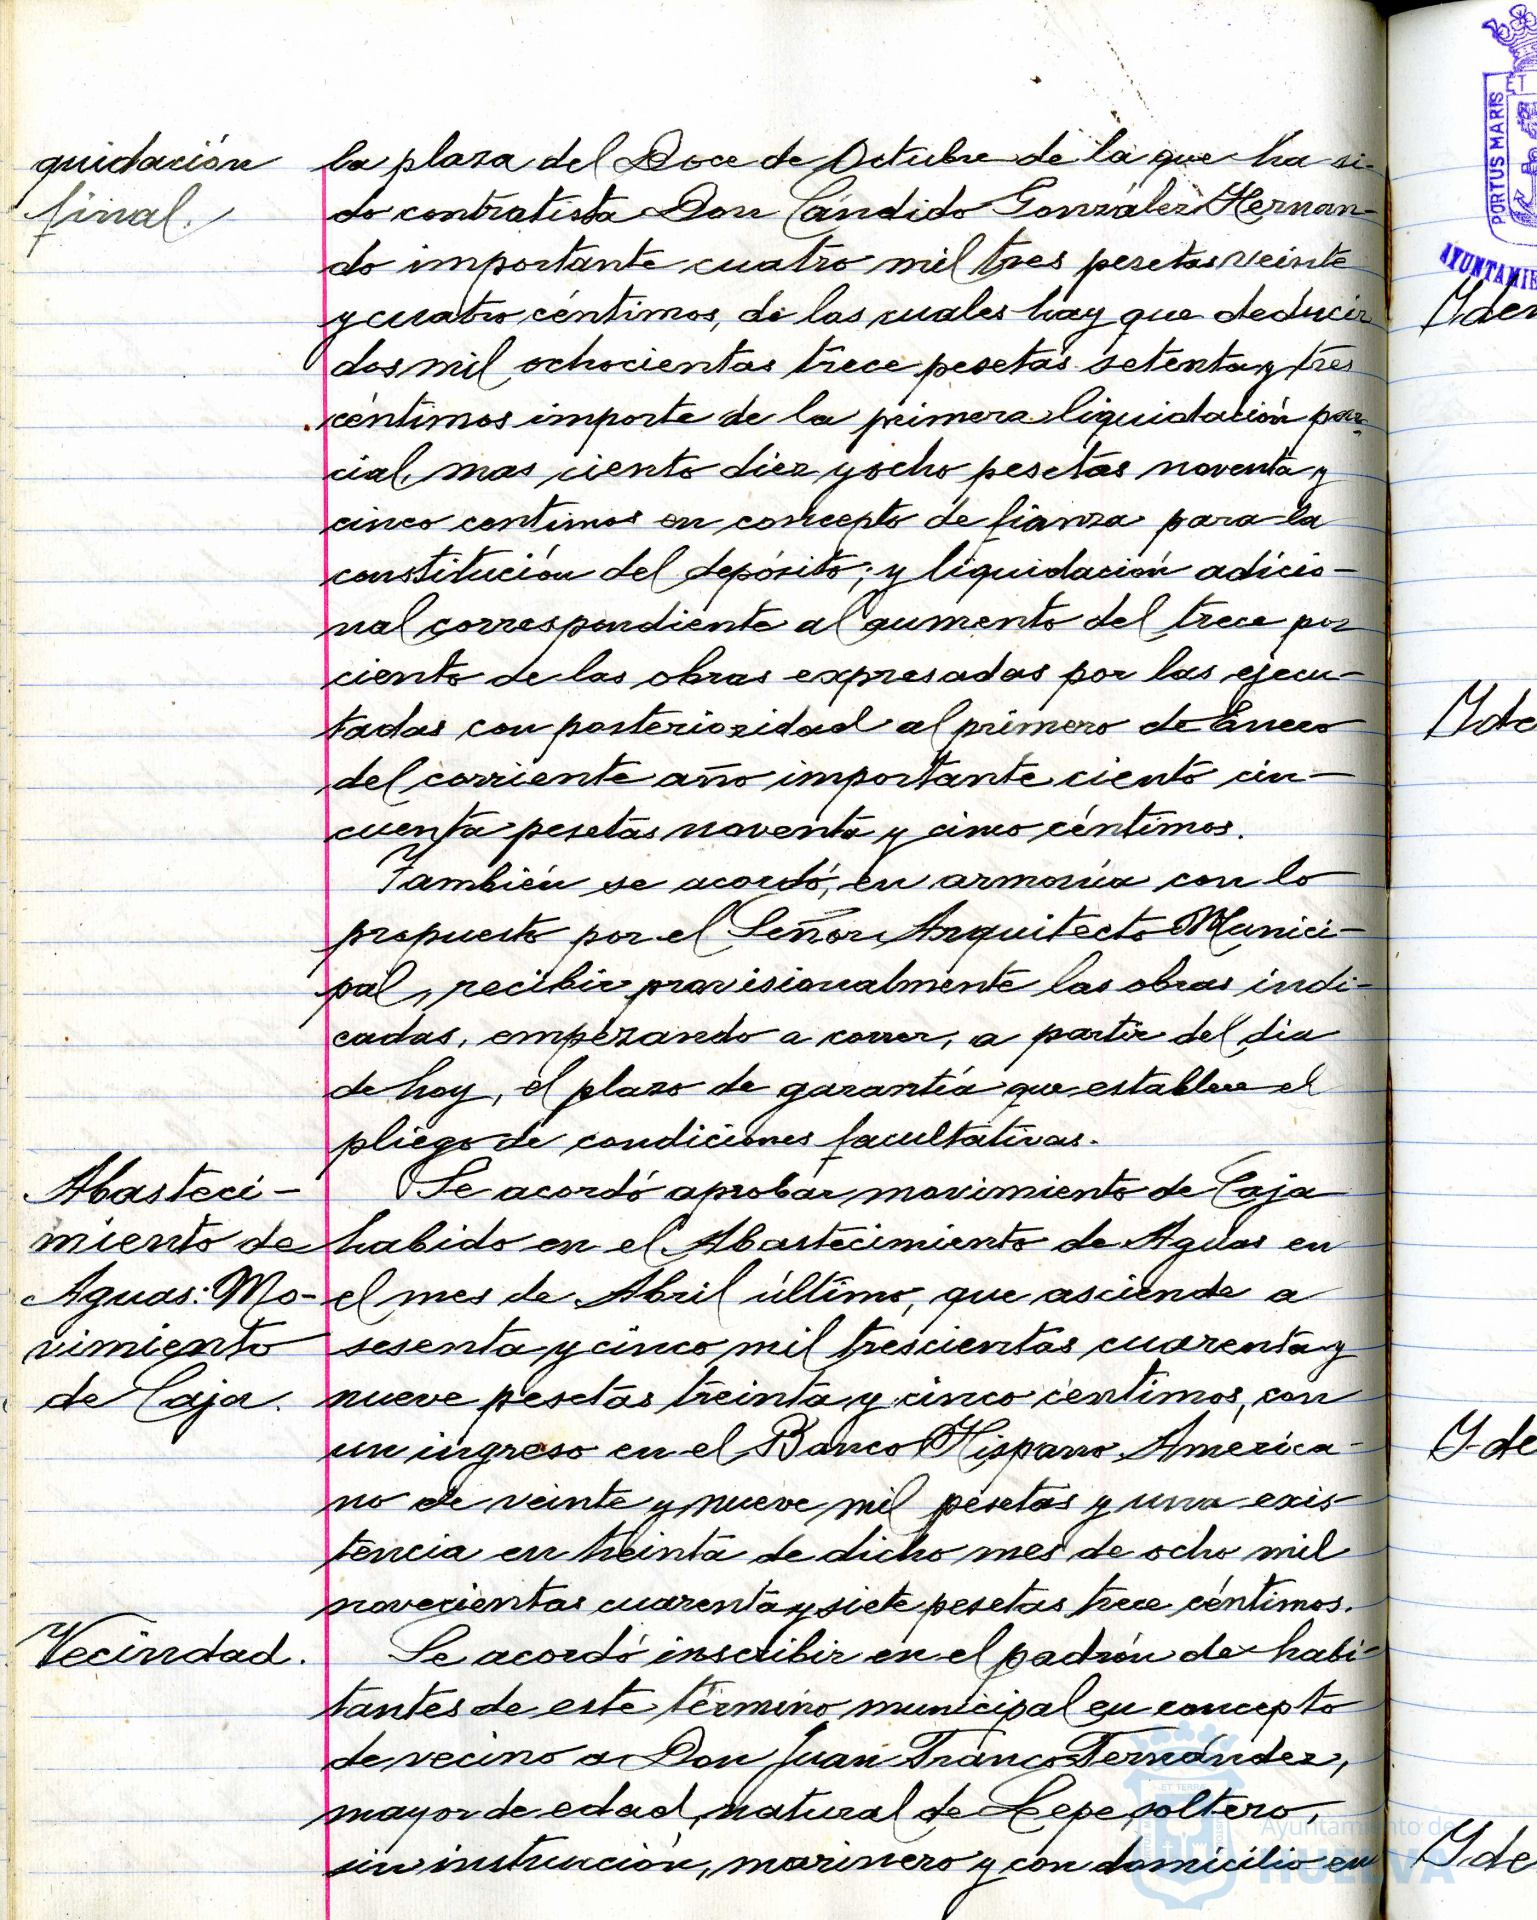 quidación
final.
la plaza del Doce de Octubre de la que ha si-
do contratista Don Cándido González Hernan-
do importante cuatro mil tres pesetas veinte
y cuatro céntimos, de las cuales hay que deducir
dos mil ochocientas trece pesetas setenta y tres
céntimos importe de la primera liquidación par-
cial, mas ciento diez y ocho pesetas noventa y
cinco centimos en concepto de fianza para la
constitución del depósito; y liquidación adicio-
nal correspondiente al aumento del trece por
ciento de las obras expresadas por las ejecu-
tadas con posterioridad al primero de Enero
del corriente año importante ciento cin-
cuenta pesetas noventa y cinco céntimos.
También se acordó, en armonía con lo
propuesto por el Señor Arquitecto Munici-
pal, recibir provisionalmente las obras indi-
cadas, empezando a correr, a partir del dia
de hoy, el plazo de garantía que establece el
pliego de condiciones facultativas.
Abasteci-
miento de
Aguas: Mo-
vimiento
de Caja.
Se acordó aprobar movimiento de Caja
habido en el Abastecimiento de Aguas en
el mes de Abril último, que asciende a
sesenta y cinco mil trescientas cuarenta y
nueve pesetas treinta y cinco centimos, con
un ingreso en el Banco Hispano America-
no de veinte y nueve mil pesetas y una exis-
tencia en treinta de dicho mes de ocho mil
novecientas cuarenta y siete pesetas trece céntimos.
Vecindad.
Se acordó inscribir en el padrón de habi-
tantes de este término municipal en concepto
de vecino a Don Juan Franco Fernández,
mayor de edad, natural de Lepe, soltero,
sin instrucción, marinero y con domicilio en
PORTUS MARIS
ET TERRA
Ayuntamiento de
HUELVA